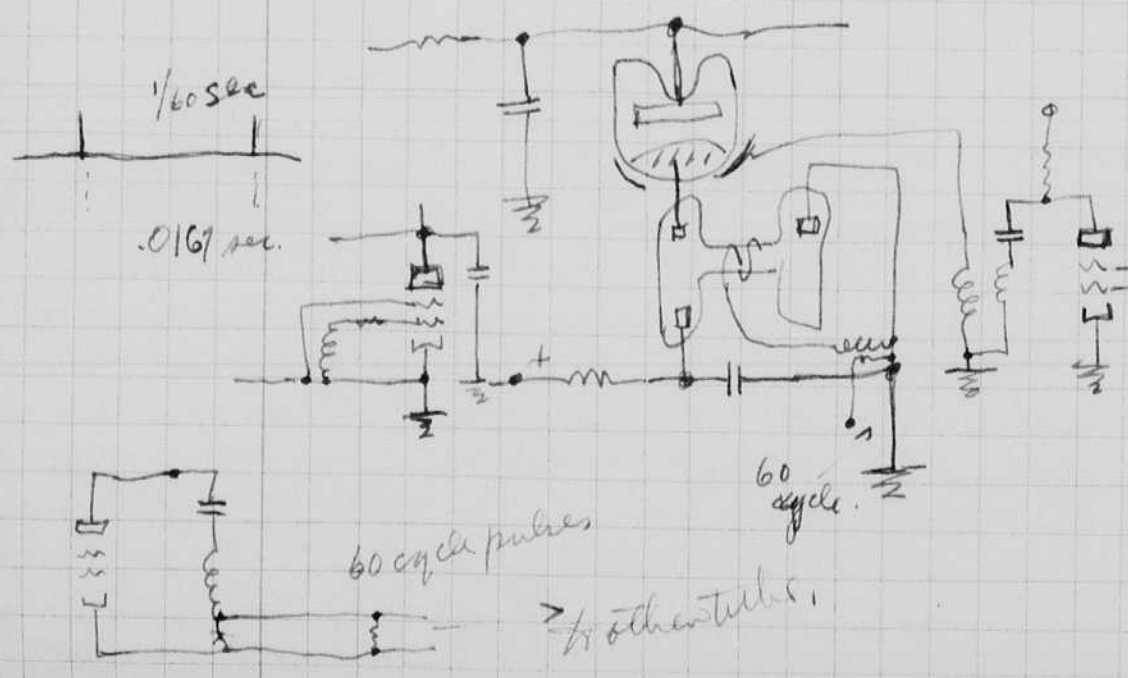 1/60 sec
.0167 sec.
+
60
cycle.
60 cycle pulses
to other tubes.